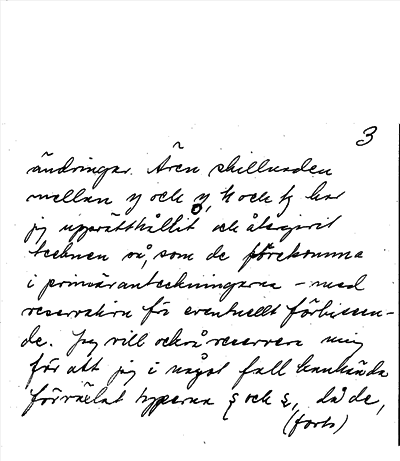 3
ändringar. Även skillnaden
mellan y och y, h och hz har
jag upprätthållit och återgivit
tecknen så, som de förekomma
i primäranteckningarna – med
reservation för eventuellt förbiseen-
de. Jag vill också reservera mig
för att jag i något fall kan hända
förväxlat typerna ξ och ξ, då de,
(forts)